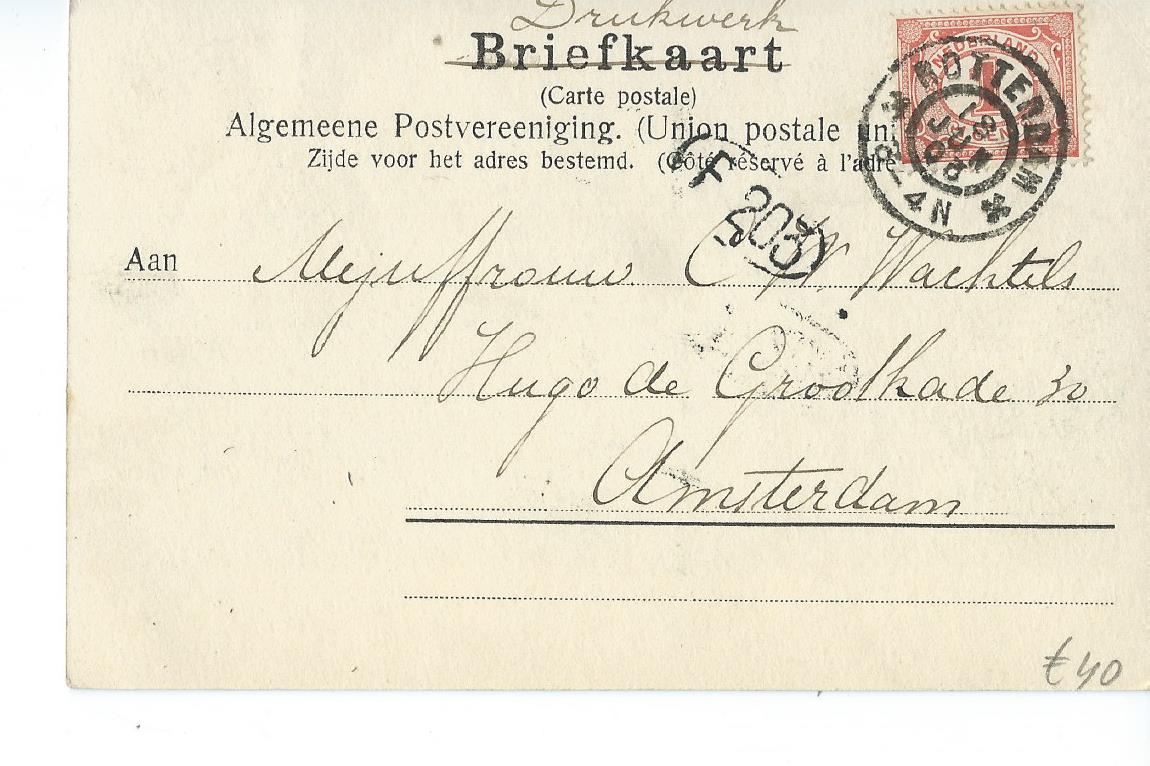 Drukwerk
Briefkaart
(Carte postale)
Algemeene Postvereeniging. (Union postale uni
Zijde voor het adres bestemd. (Côté réservé à l'adre
NEDERLAND
1
CENT
ROTTERDAM
4N
F 203
Aan Mejuffrouw C. W. Wachtels
Hugo de Grootkade 30
Amsterdam
€40